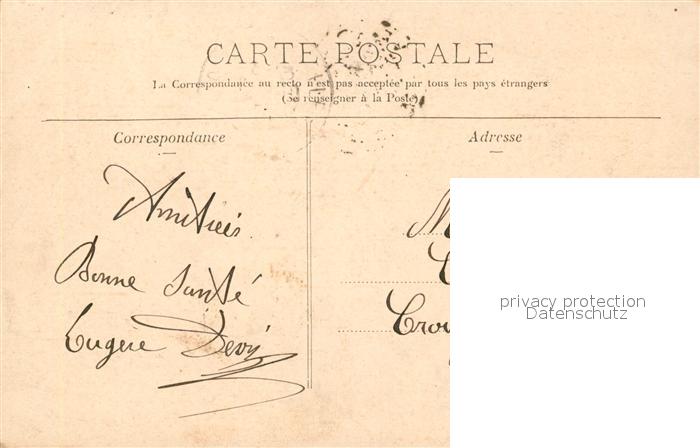 CARTE POSTALE
La Correspondance au recto n'est pas acceptée par tous les pays étrangers
(Se renseigner à la Poste)
Correspondance
Amitiés
Bonne Santé
Eugène
Adresse
privacy protection
Datenschutz